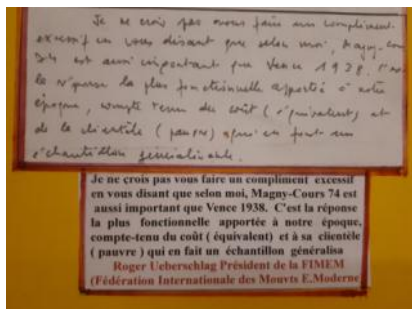 Je ne crois pas vous faire un compliment
excessif en vous disant que selon moi, Magny-Cours
74 est aussi important que Vence 1938. C'est
la réponse la plus fonctionnelle apportée à notre
époque, compte tenu du coût (équivalent) et
de la clientèle (pauvre) qui en fait un
échantillon généralisable.
Je ne crois pas vous faire un compliment excessif
en vous disant que selon moi, Magny-Cours 74 est
aussi important que Vence 1938. C'est la réponse
la plus fonctionnelle apportée à notre époque,
compte-tenu du coût ( équivalent) et à sa clientèle
( pauvre ) qui en fait un échantillon généralisa
Roger Ueberschlag Président de la FIMEM
(Fédération Internationale des Mouvts E.Moderne